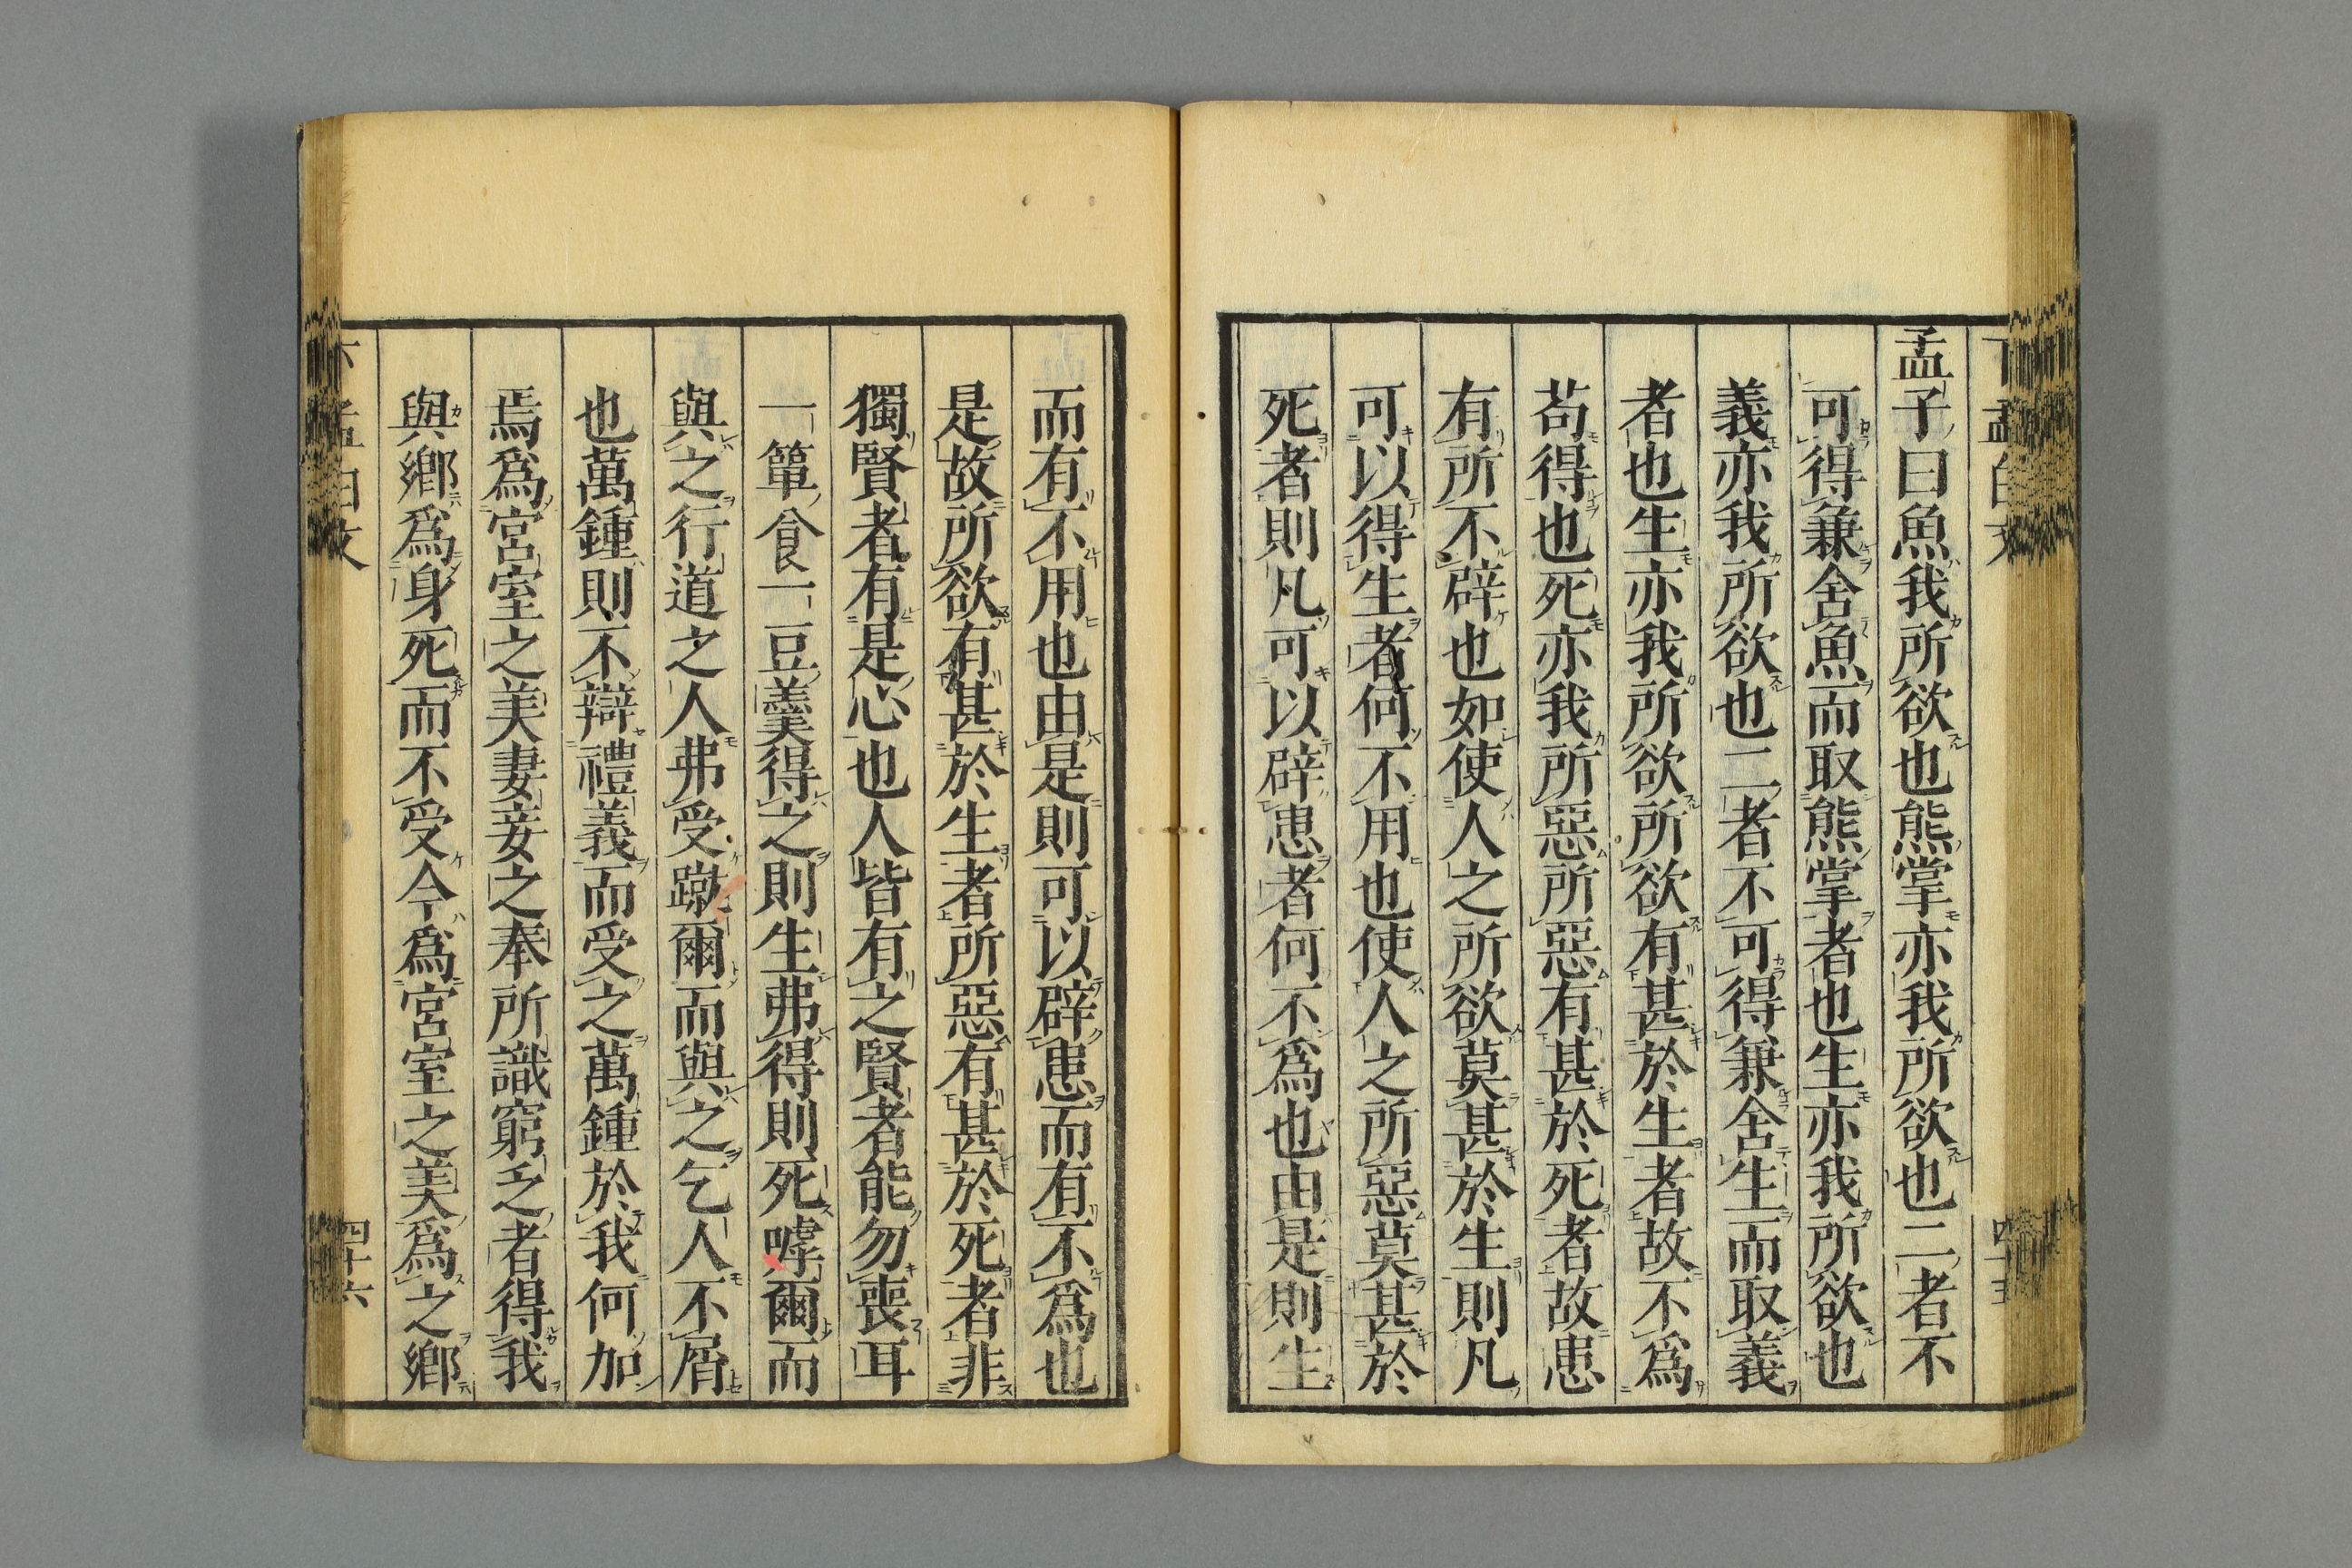 孟子曰魚我所欲也熊掌亦我所欲也二者不
可得兼舍魚而取熊掌者也生亦我所欲也
義亦我所欲也二者不可得兼舍生而取義
者也生亦我所欲所欲有甚於生者故不爲
苟得也死亦我所惡所惡有甚於死者故患
有所不辟也如使人之所欲莫甚於生則凡
可以得生者何不用也使人之所惡莫甚於
死者則凡可以辟患者何不爲也由是則生
而有不用也由是則可以辟患而有不爲也
是故所欲有甚於生者所惡有甚於死者非
獨賢者有是心也人皆有之賢者能勿喪耳
一簞食一豆羹得之則生弗得則死嘑爾而
與之行道之人弗受蹴爾而與之乞人不屑
也萬鍾則不辯禮義而受之萬鍾於我何加
焉爲宮室之美妻妾之奉所識窮乏者得我
與鄉爲身死而不受今爲宮室之美爲之鄉
四十六